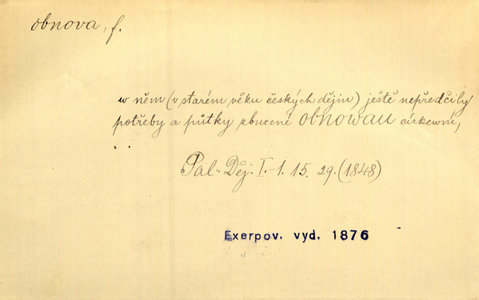 obnova, f.
w něm (v starém věku českých dějin) ještě nepředčily
potřeby a půtky zbuzené obnowau církewní,
..
Pal. Děj. I.-1. 15. 29. (1848)
Exerpov. vyd. 1876